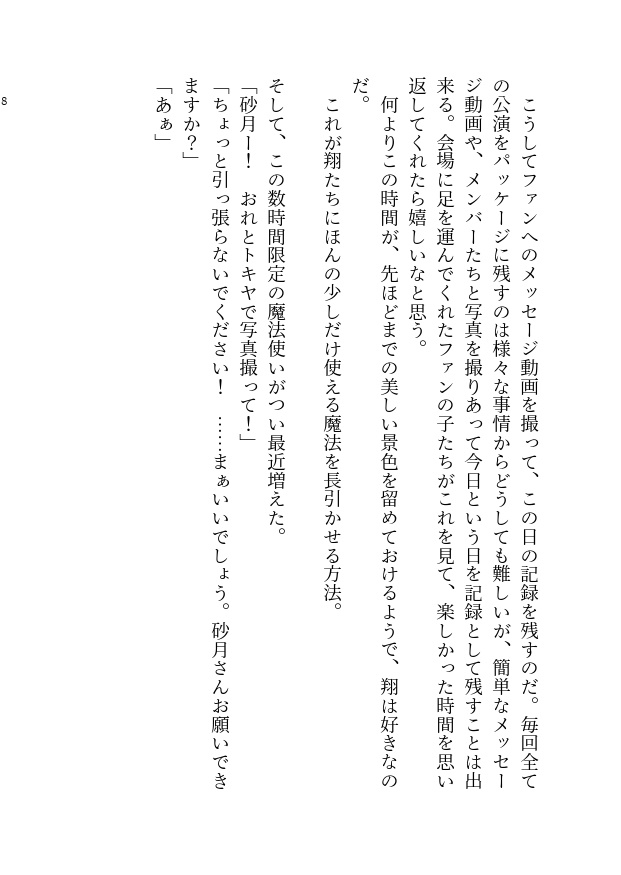 こうしてファンへのメッセージ動画を撮って、この日の記録を残すのだ。毎回全て
の公演をパッケージに残すのは様々な事情からどうしても難しいが、簡単なメッセー
ジ動画や、メンバーたちと写真を撮りあって今日という日を記録として残すことは出
来る。会場に足を運んでくれたファンの子たちがこれを見て、楽しかった時間を思い
返してくれたら嬉しいなと思う。
　何よりこの時間が、先ほどまでの美しい景色を留めておけるようで、翔は好きなの
だ。
　これが翔たちにほんの少しだけ使える魔法を長引かせる方法。
そして、この数時間限定の魔法使いがつい最近増えた。
「砂月ー！　おれとトキヤで写真撮って！」
「ちょっと引っ張らないでください！　……まぁいいでしょう。砂月さんお願いでき
ますか？」
「あぁ」
8